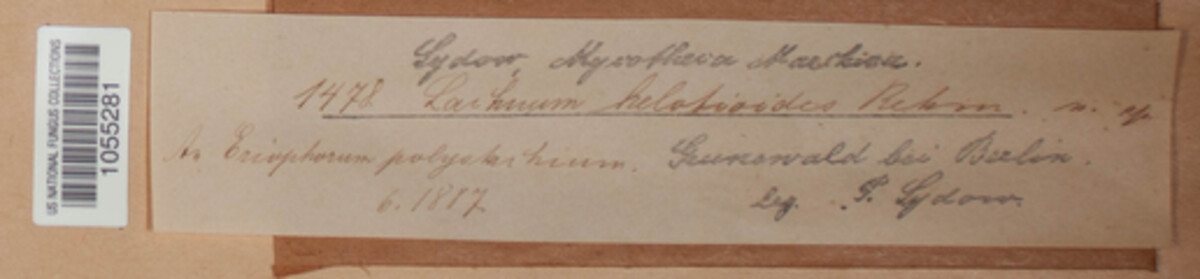 US NATIONAL FUNGUS COLLECTIONS
1055281
Sydow, Mycotheca Marchica.
1478 Lachnum helotioides Rehm. n. sp
An Eriophorum polystachium. Grunewald bei Berlin.
6. 1887 leg. P. Sydow.